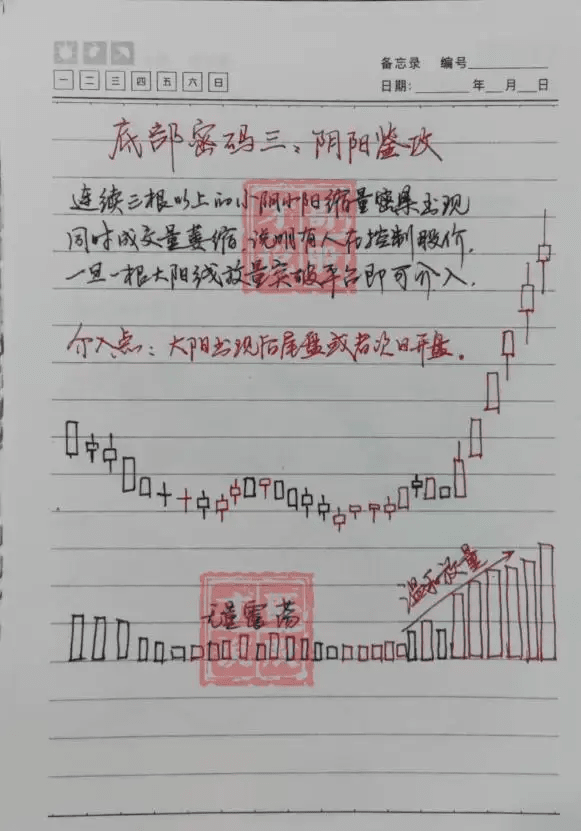 备忘录 编号
一 二 三 四 五 六 日
日期: 年 月 日
底部密码三:阴阳鉴攻
连续三根以上的小阴小阳缩量密集出现
同时成交量萎缩 说明有人在控制股价,
一旦一根大阳线放量突破平台即可介入.
介入点:大阳出现后尾盘或者次日开盘。
温和放量
无量震荡